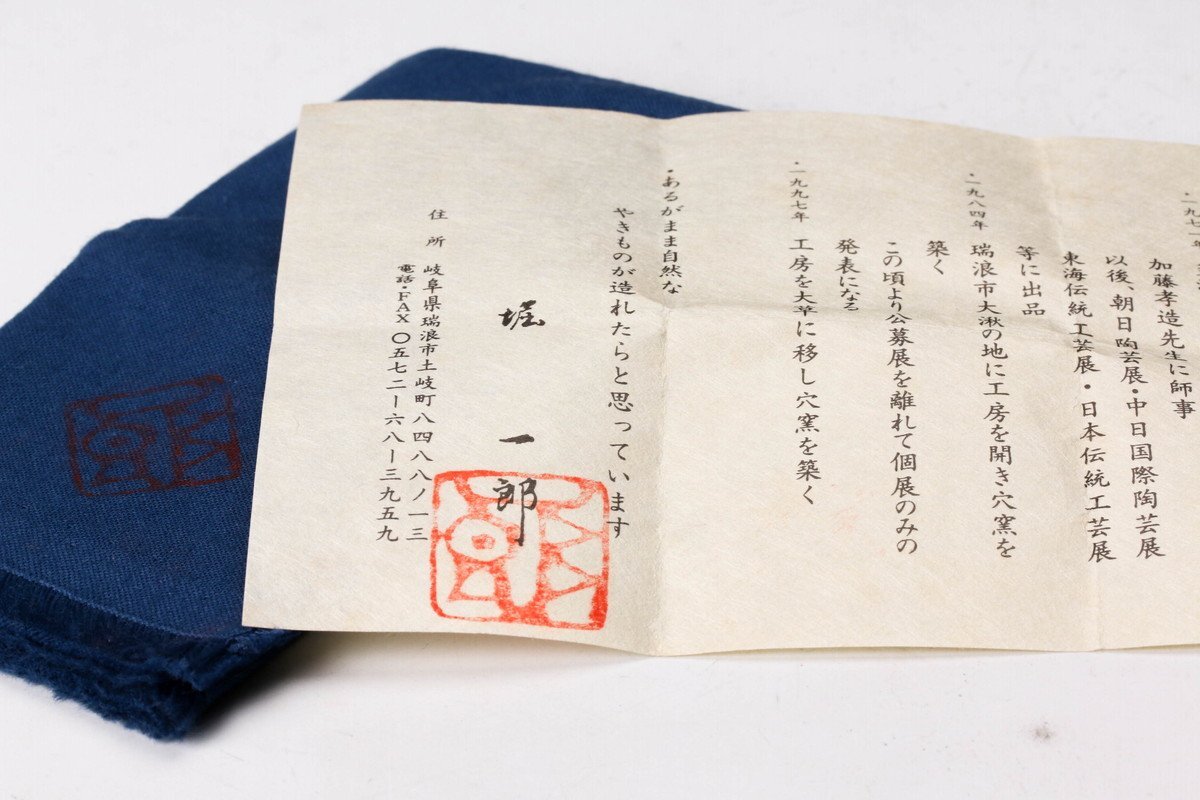 ・一九七一年
加藤孝造先生に師事
以後、朝日陶芸展・中日国際陶芸展
東海伝統工芸展・日本伝統工芸展
等に出品
・一九八四年 瑞浪市大湫の地に工房を開き穴窯を
築く
この頃より公募展を離れて個展のみの
発表になる
・一九九七年 工房を大草に移し穴窯を築く
・あるがまま自然な
やきものが造れたらと思っています
堀 一郎
住所 岐阜県瑞浪市土岐町八四八八ノ一三
電話・FAX 〇五七二ー六八ー三九五九